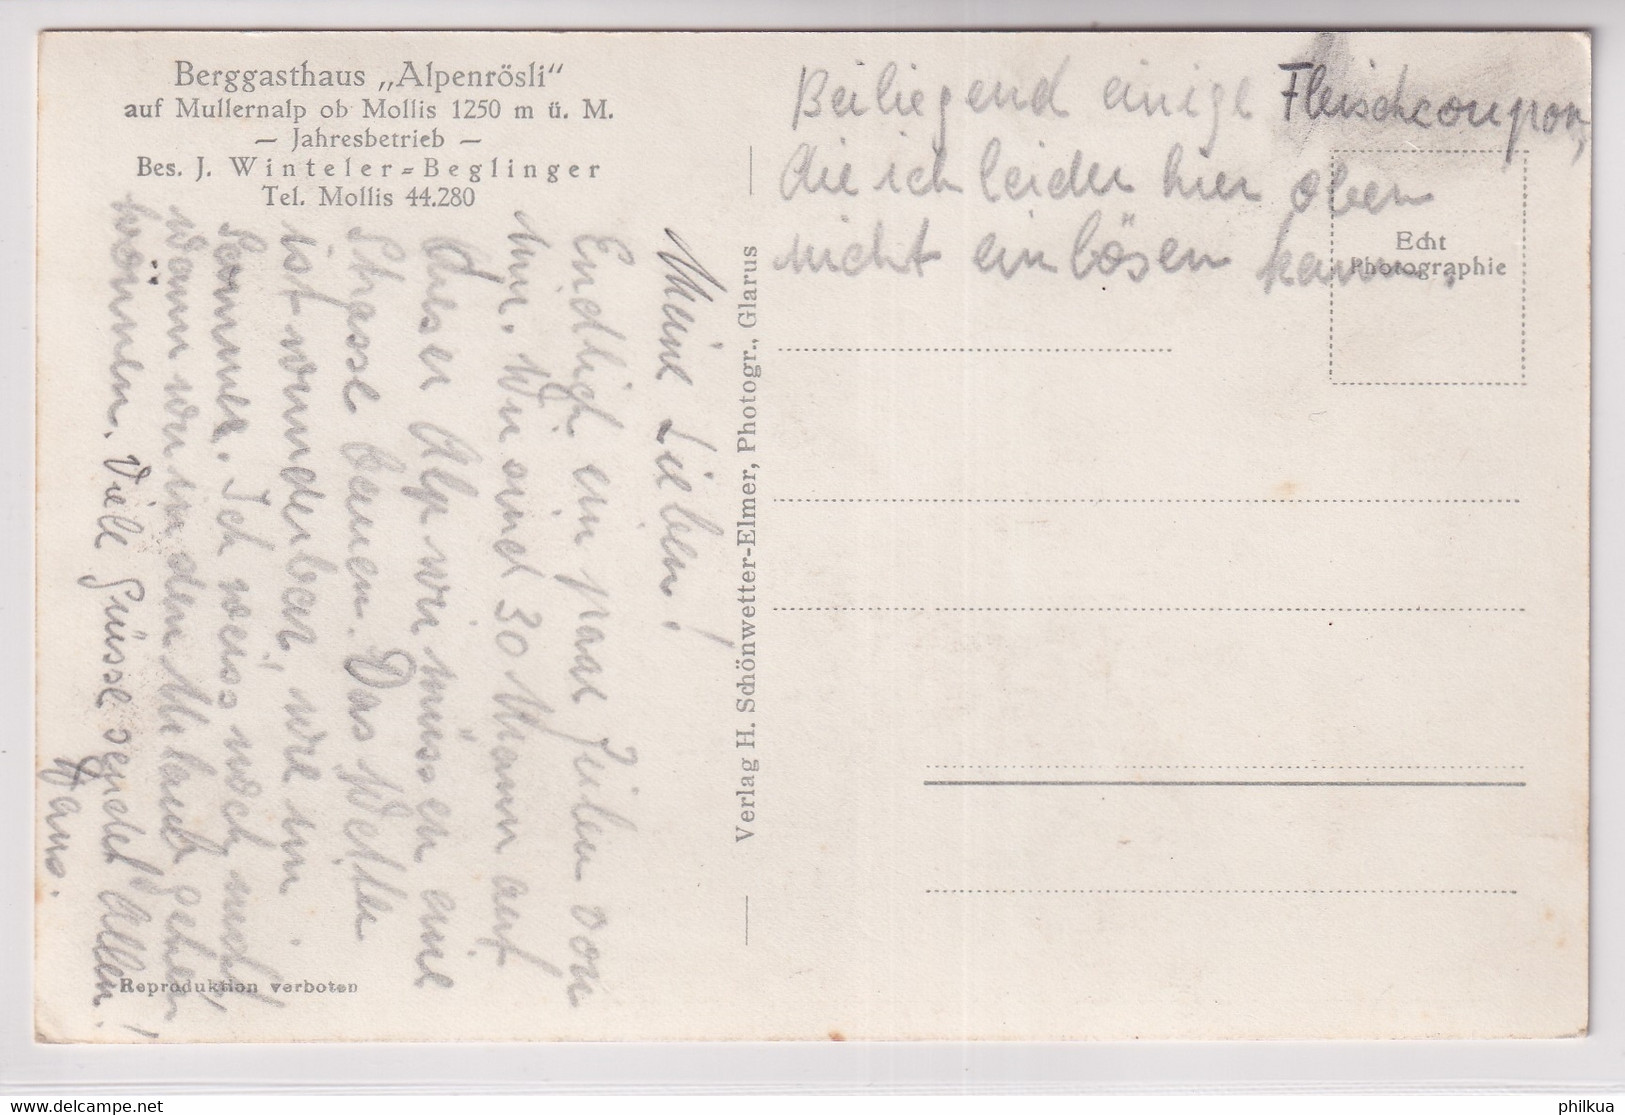 Berggasthaus „Alpenrösli“
auf Mullernalp ob Mollis 1250 m ü. M.
— Jahresbetrieb —
Bes. J. Winteler-Beglinger
Tel. Mollis 44.280
Meine Lieben!
Endlich ein paar Zeilen von
mir. Wir sind 30 Mann auf
dieser Alp wir müssen eine
Strasse bauen. Das Wetter
ist wunderbar, wie im
Sommer. Ich weiss noch nicht,
wann wir in den Urlaub gehen
können. Viele Grüsse sendet Allen!
Hans.
Reproduktion verboten
Verlag H. Schönwetter-Elmer, Photogr., Glarus
Beiliegend einige Fleischcoupon,
die ich leider hier oben
nicht einlösen kann.
Echt
Photographie
https://www.delcampe.net
philkua